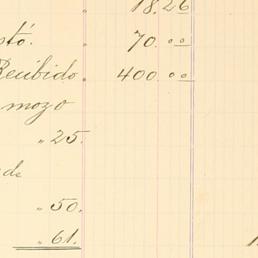 18.26
stó. 70.00
Recibido. 400.00
mozo
" 25.
de
" 50.
" 61.